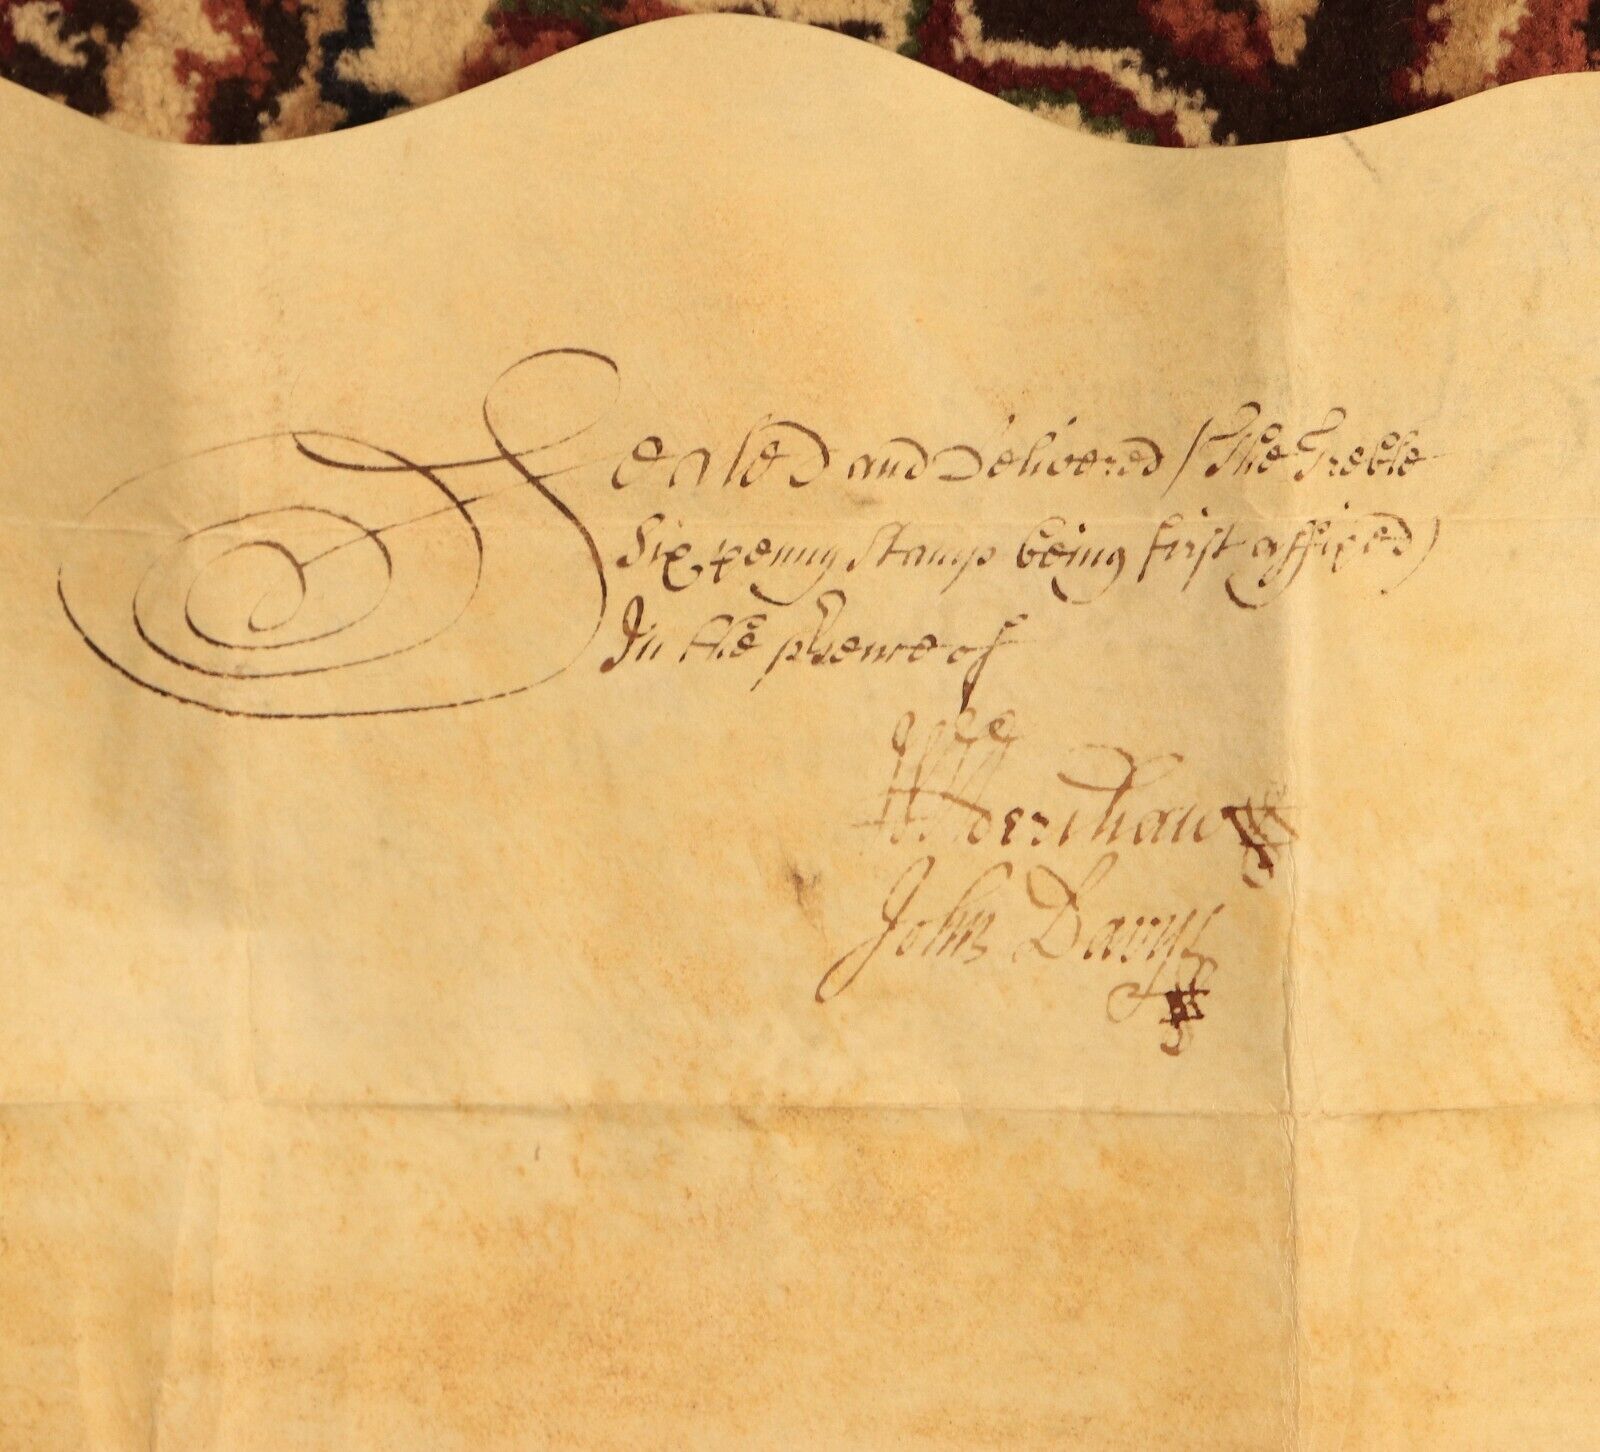 Sealed and Delivered (The Treble
Six penny Stamp being first affixed)
In the presence of
John Davys